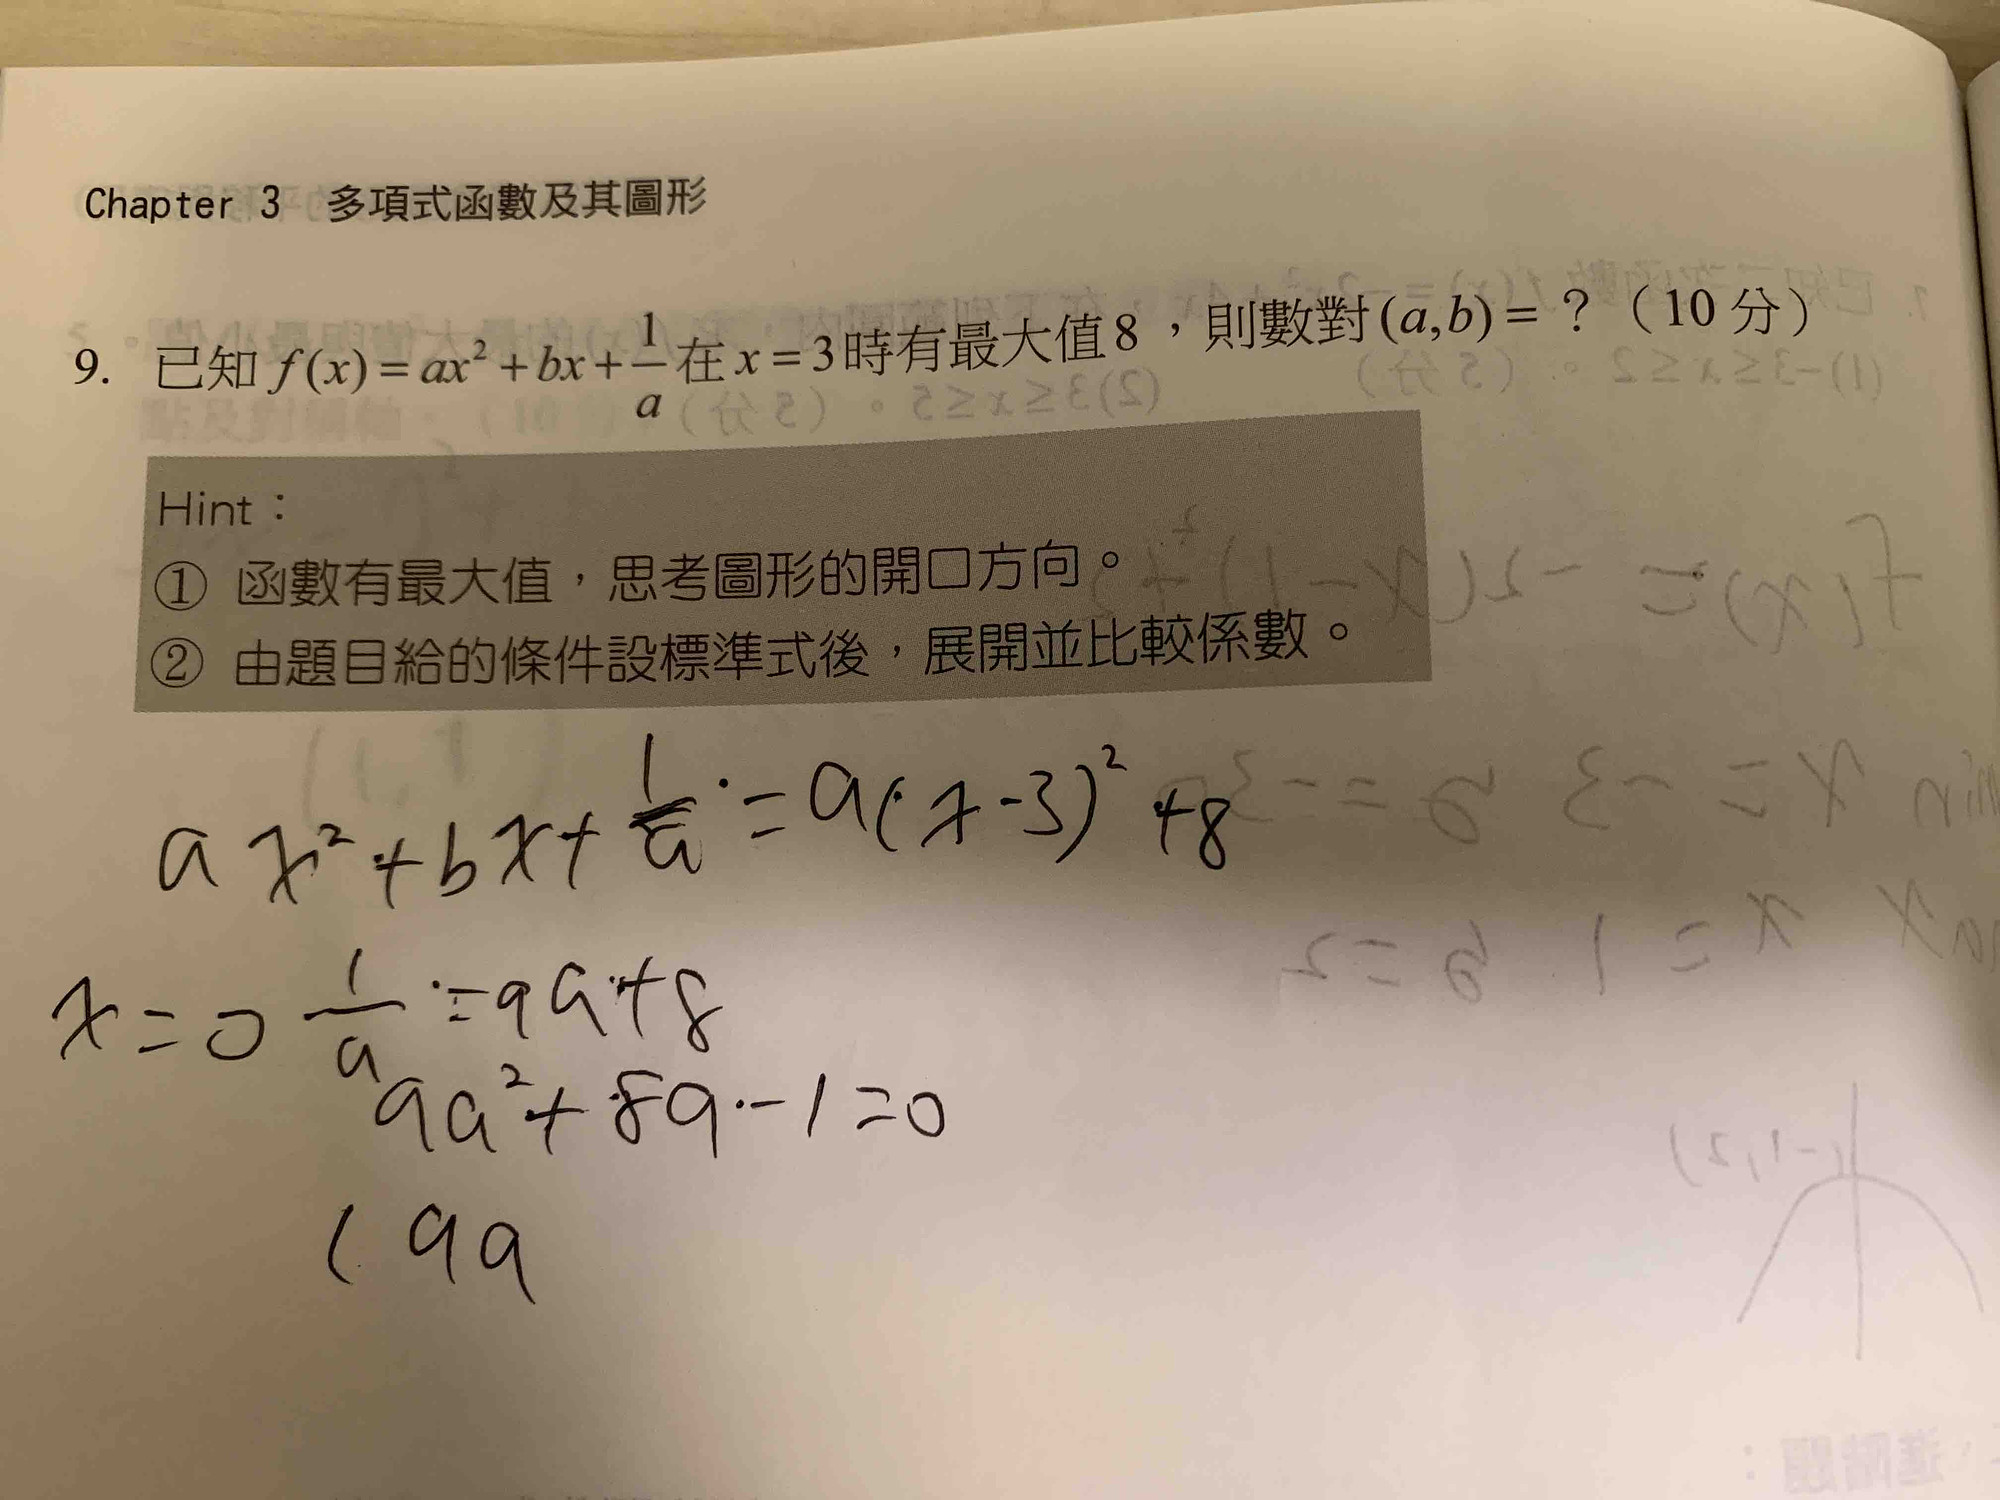 Chapter 3 多項式函數及其圖形
9. 已知 f(x) = ax² + bx + 1/a 在 x = 3 時有最大值 8，則數對 (a,b) = ？（10 分）
Hint：
① 函數有最大值，思考圖形的開口方向。
② 由題目給的條件設標準式後，展開並比較係數。
ax² + bx + 1/a = a(x-3)² + 8
x = 0 1/a = 9a + 8
9a² + 8a - 1 = 0
(9a